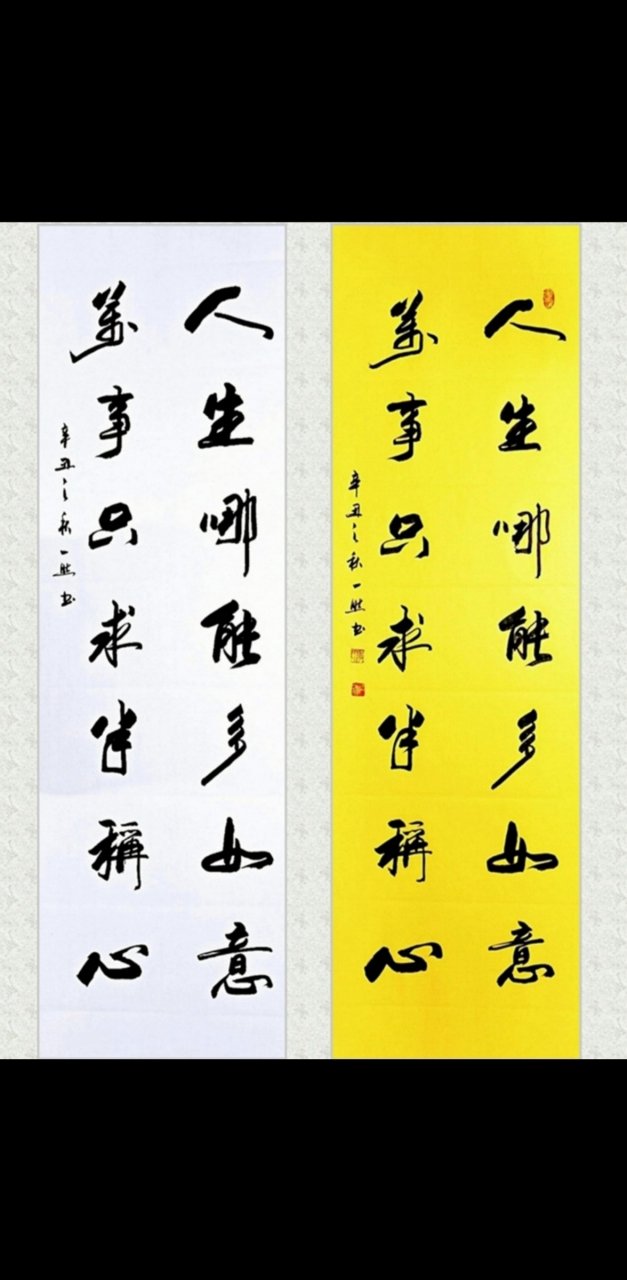 人生哪能多如意
萬事只求半稱心
辛丑之秋一熙书
人生哪能多如意
萬事只求半稱心
辛丑之秋一熙书